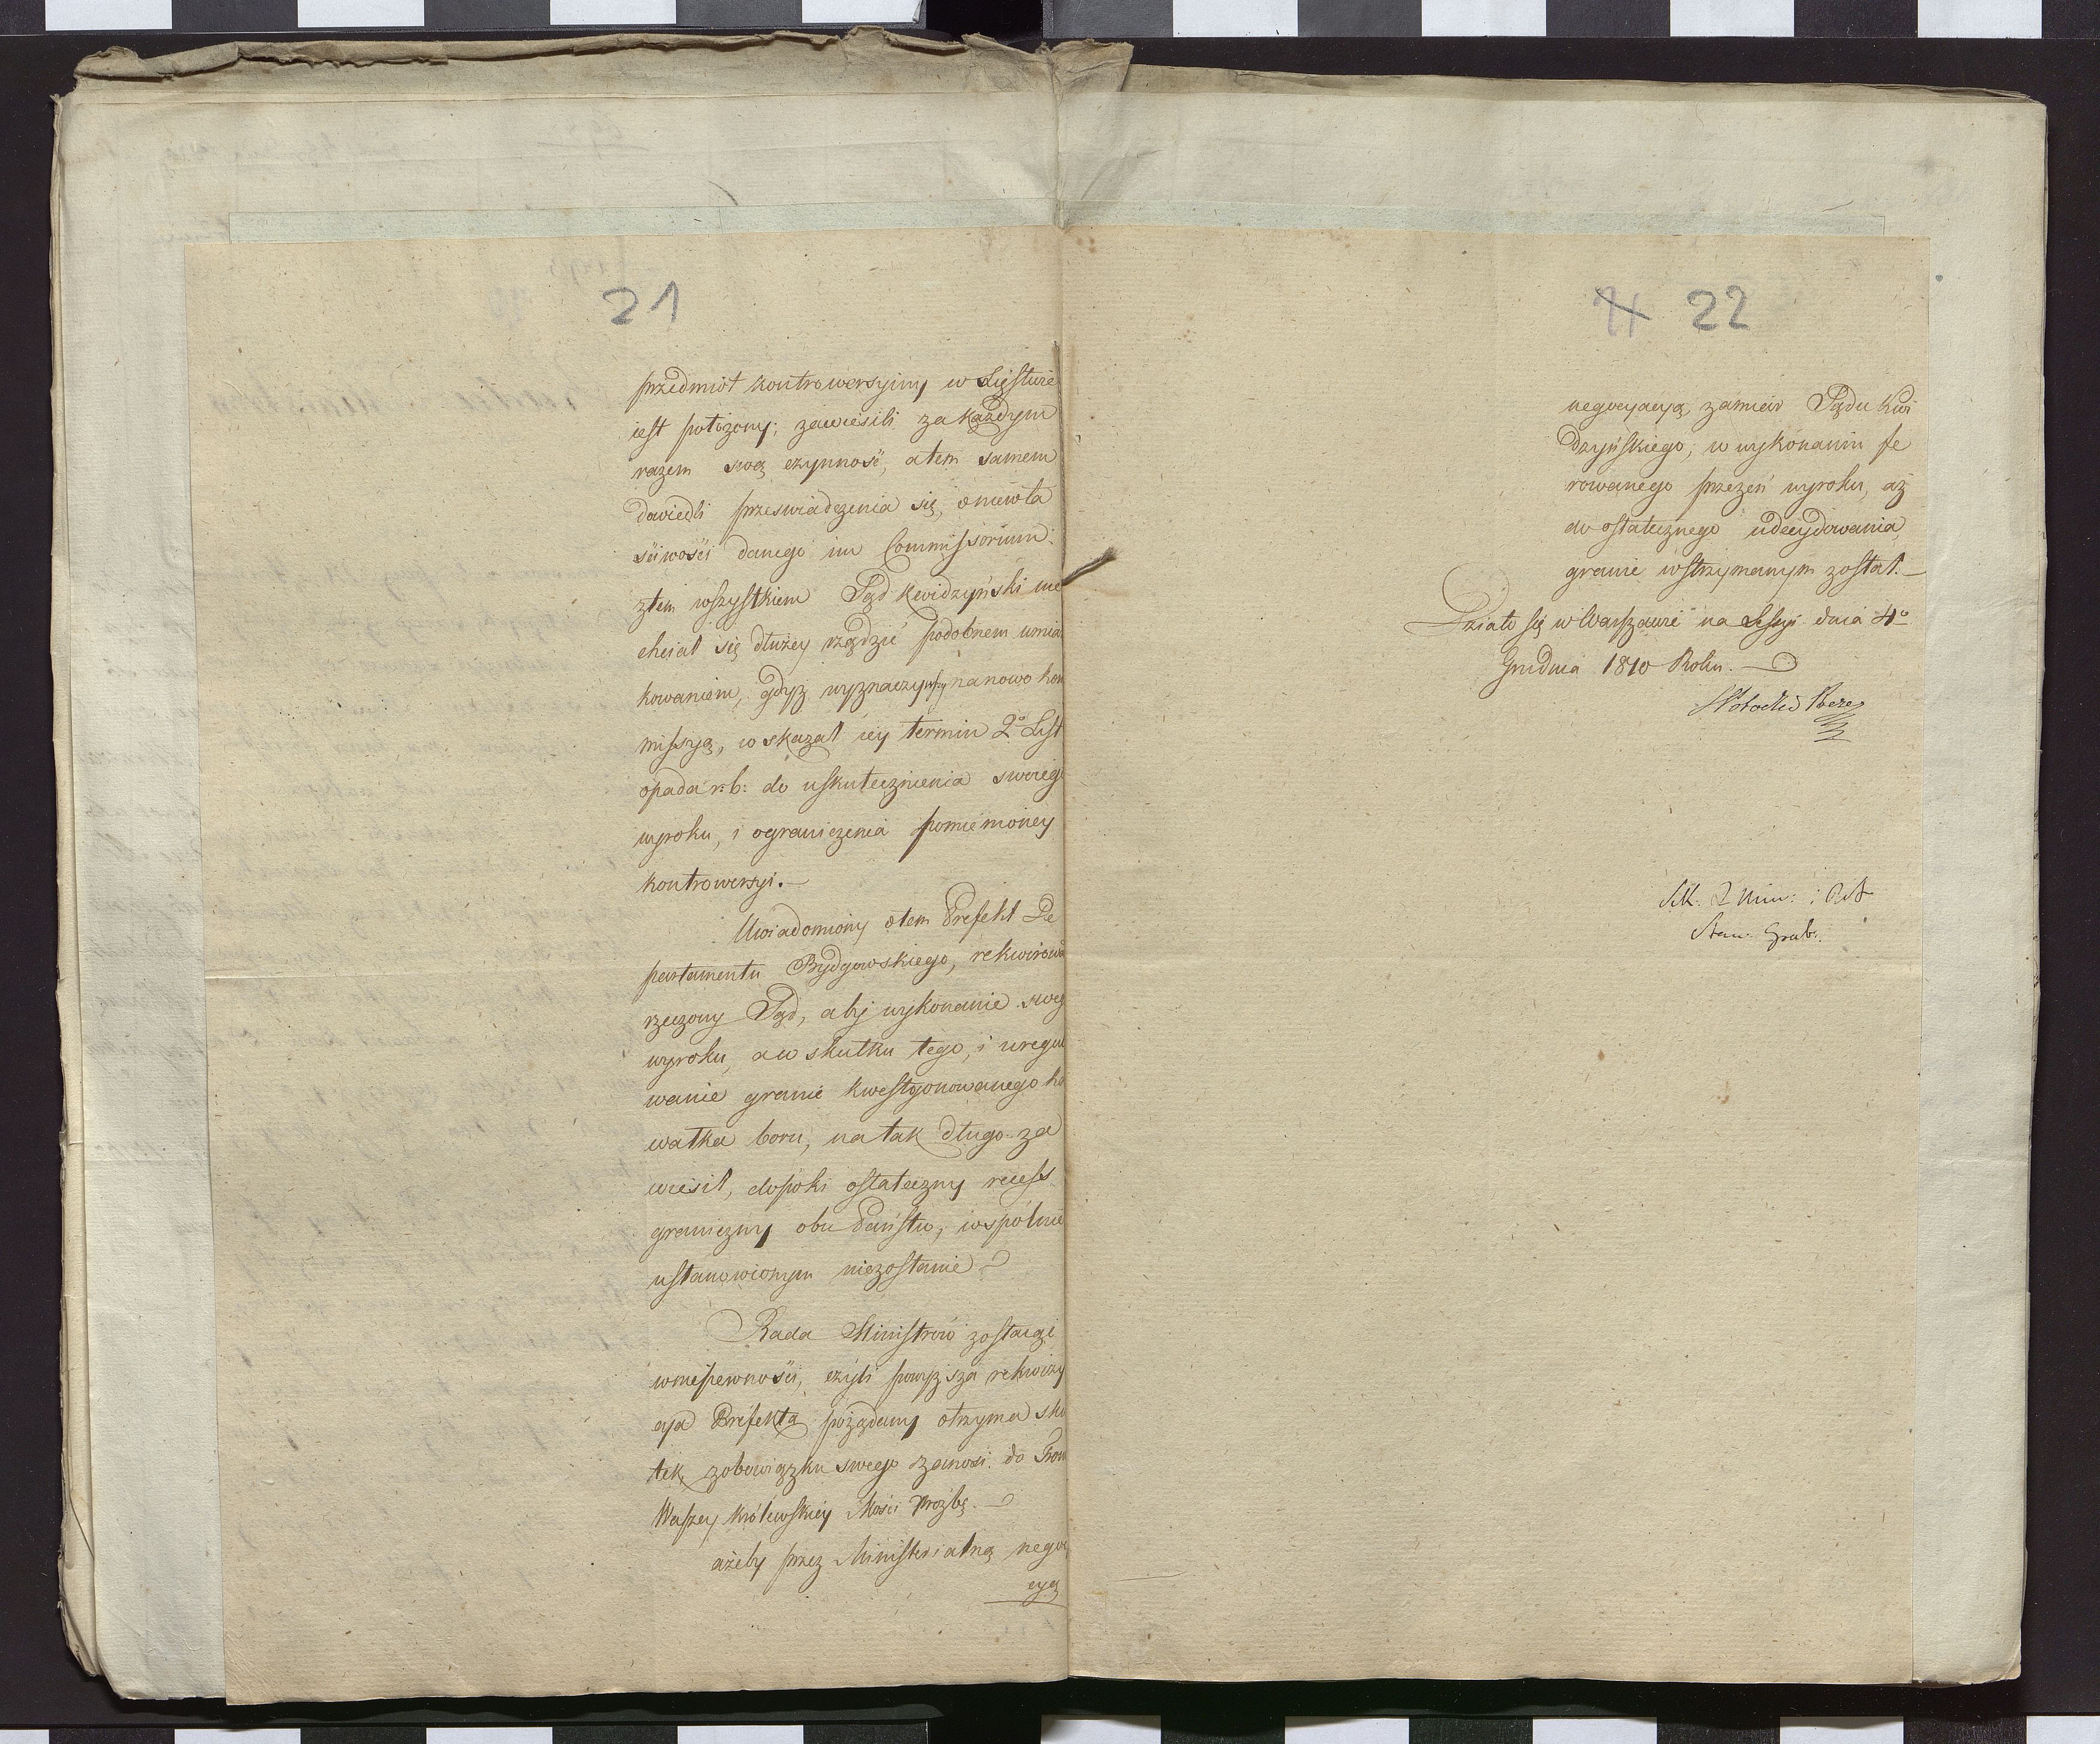 21
przedmiot kontrowersyiny w Xięstwie
iest położony; zawiesili za każdym
razem swą czynność, a tem samem
dowiedli przeswiadczenia się, o niewła
sciwości danego im Commissorium.
z tem wszystkiem Sąd Kwidzyński nie
chciał się dłużey rządzić podobnem umiar
kowaniem, gdyż wyznaczywszy na nowo kom
missyą, wskazał iey termin 2º List
opada r: b: do uskutecznienia swoieg
wyroku, i ograniczenia pomienioney
kontrowersyi.—
Uwiadomiony o tem Prefekt De
partamentu Bydgowskiego, rekwirowa
rzeczony Sąd, aby wykonanie sweg
wyroku, a w skutku tego, i uregul
wanie granic kwestyonowanego ka
wałka boru, na tak długo za
wiesił, dopoki ostateczny recess
graniczny obu Państw, wspólnie
ustanowionym niezostanie
Rada Ministrów zostaiąc
w niepewności, czyli powyższa rekwizy
cya Prefekta pożądany otrzyma sku
tek, z obowiązku swego zanosi do Tron
Waszey Królewskiey Mości Prożbę.—
ażeby przez Ministerialną negoc
cyą
21 22
negocyacyą, zamiar Sądu Kwi
dzyńskiego, w wykonaniu fe
rowanego przezeń wyroku, aż
do ostatecznego udecydowania,
granic wstrzymanym został.—
Działo się w Warszawie na Sessyi dnia 4º
Grudnia 1810 Roku.—
Stan: Grab: